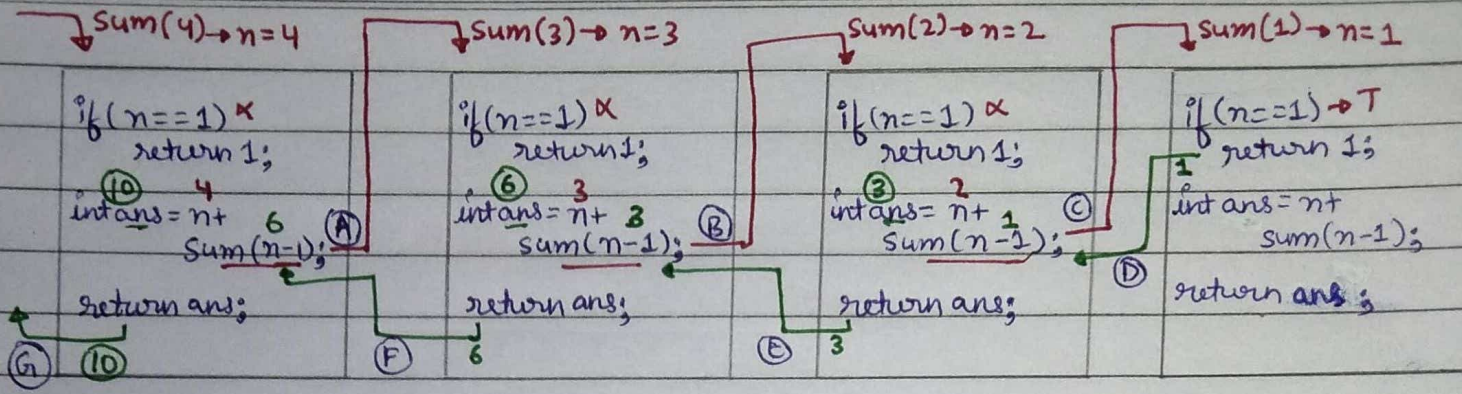 sum(4)→n=4
if(n==1) ×
return 1;
10 4
int ans = n+ 6
sum(n-1); A
return ans;
G 10
sum(3)→ n=3
if(n==1) ×
return 1;
6 3
int ans = n+ 3
sum(n-1); B
return ans;
F 6
sum(2)→n=2
if(n==1) ×
return 1;
3 2
int ans = n+ 1 C
sum(n-1);
return ans;
E 3
sum(1)→n=1
if(n==1)→T
return 1;
1
int ans = n+
sum(n-1);
D
return ans;